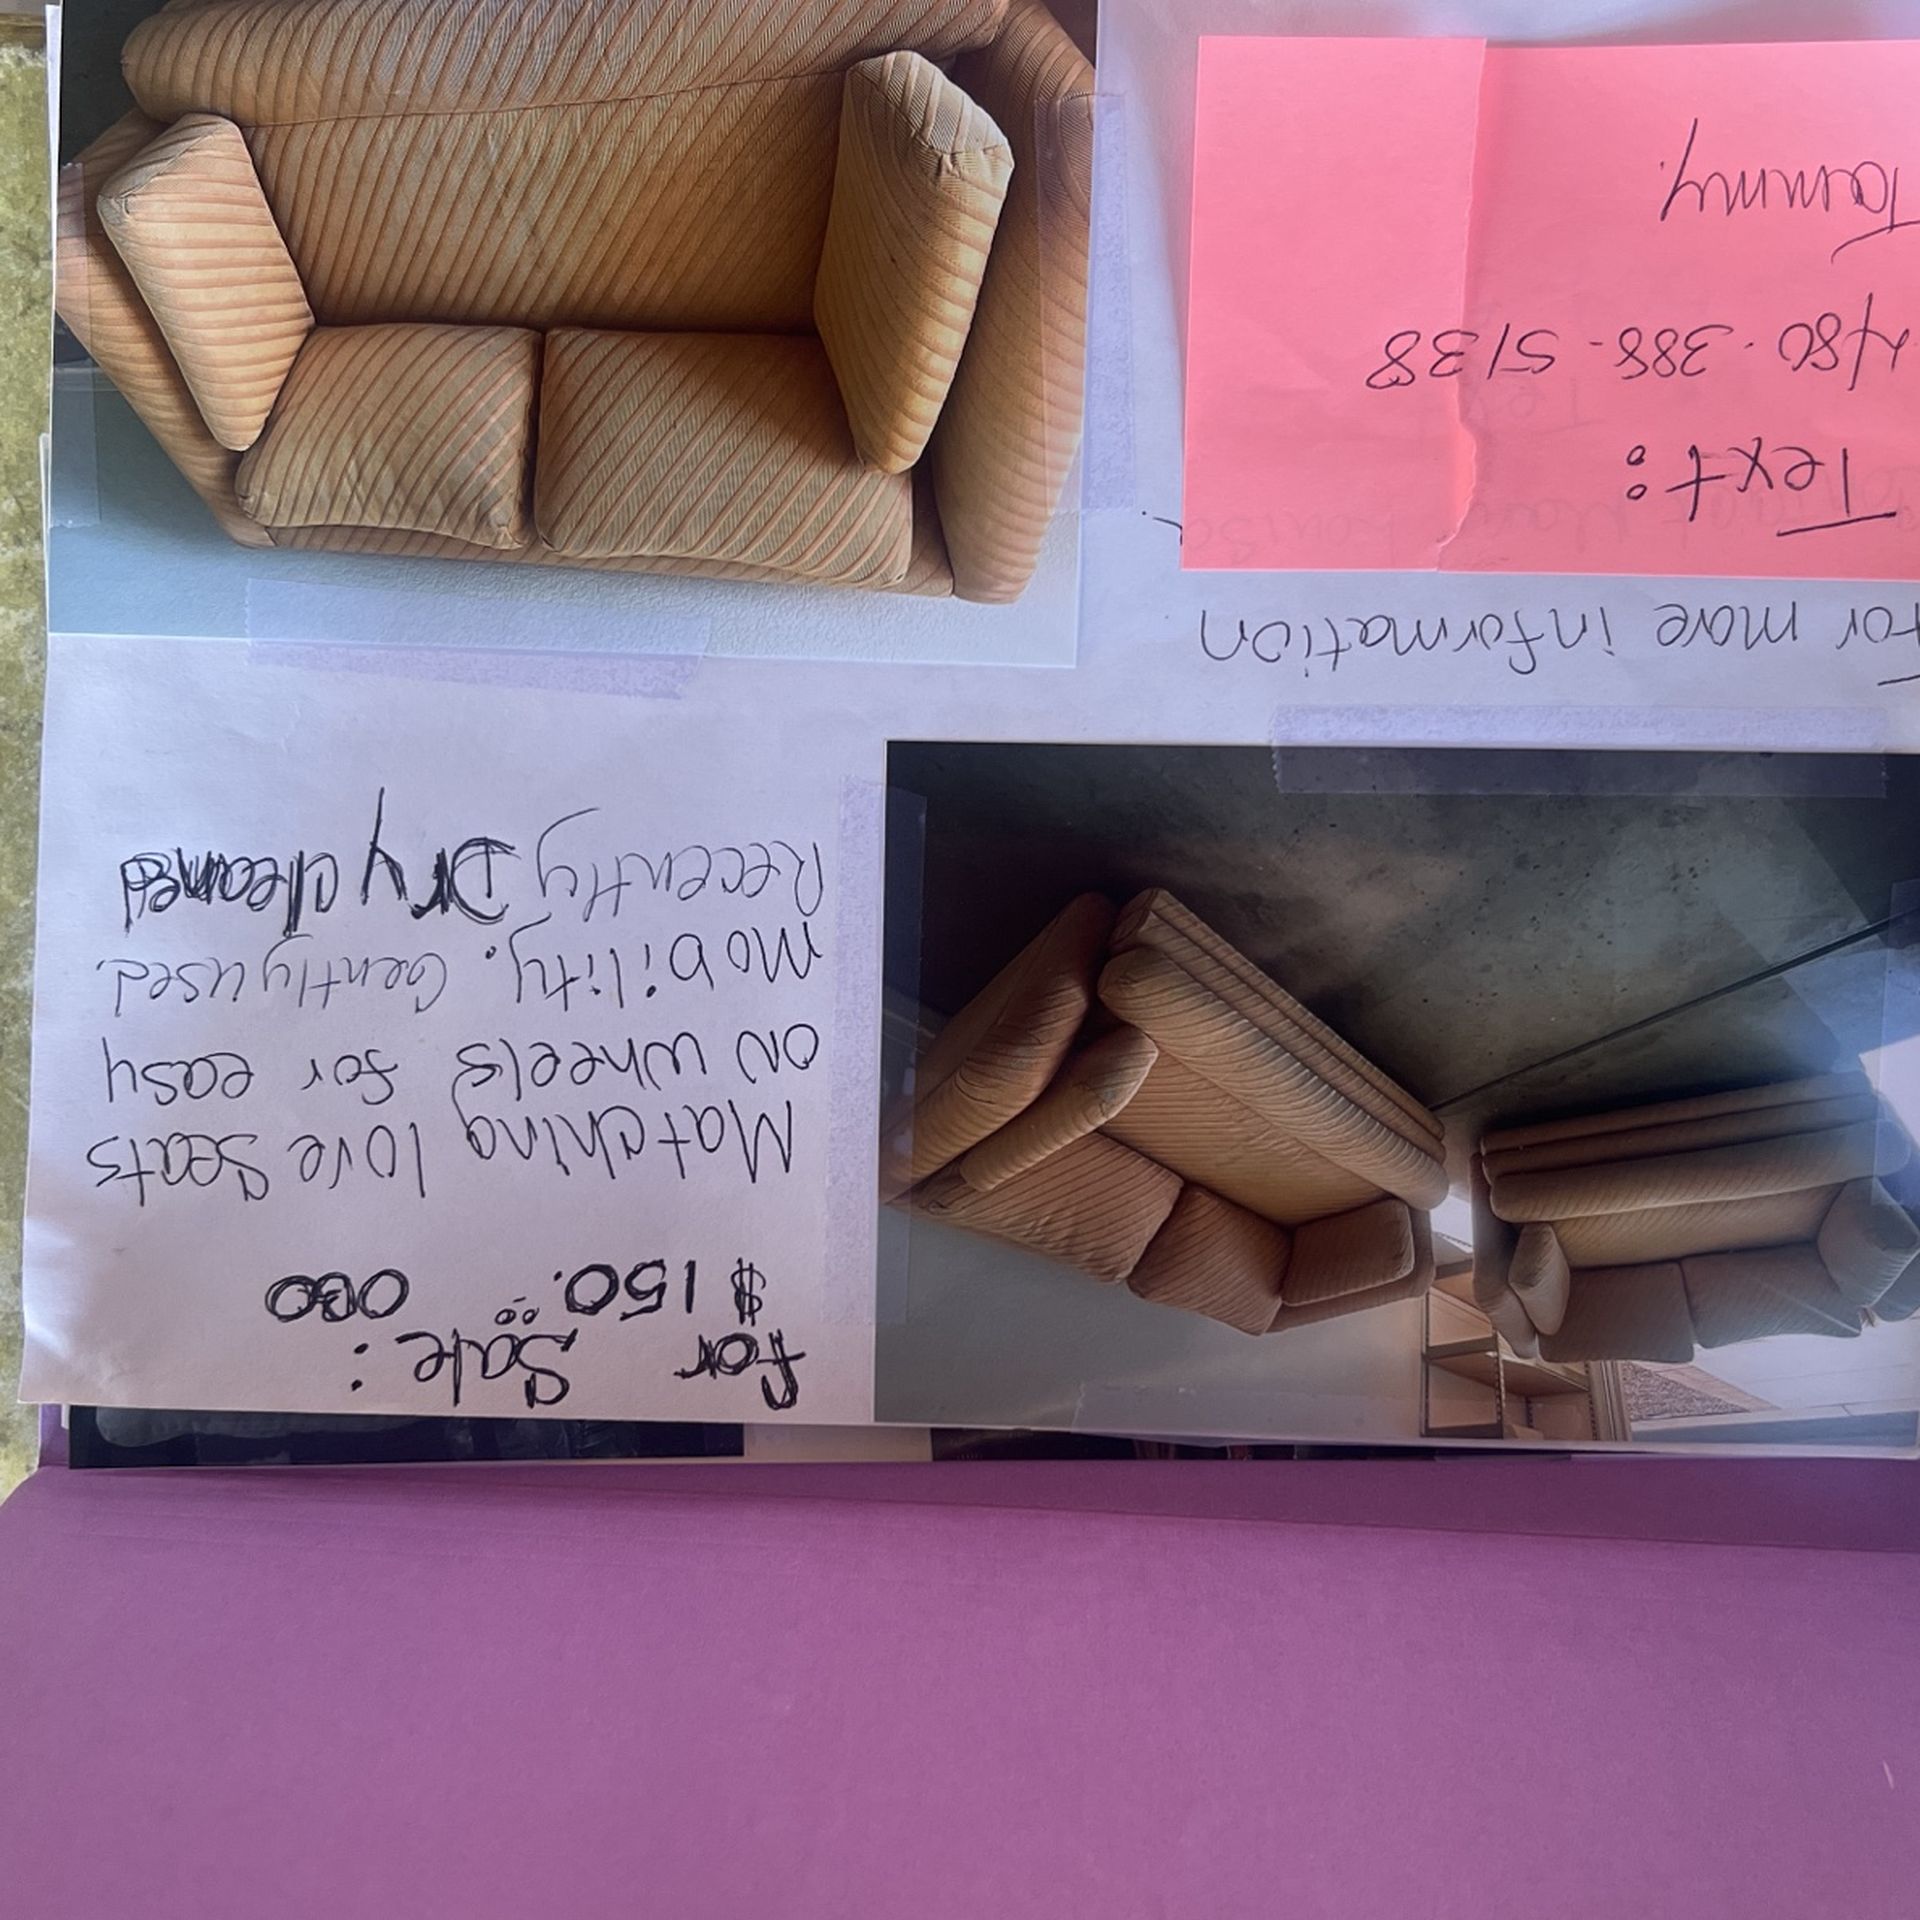 For Sale:
$150.00 OBO
Matching love Seats
on wheels for easy
mobility. Gently used.
Recently Dry cleaned
For more information
Text:
480. 388- 5138
Tammy.